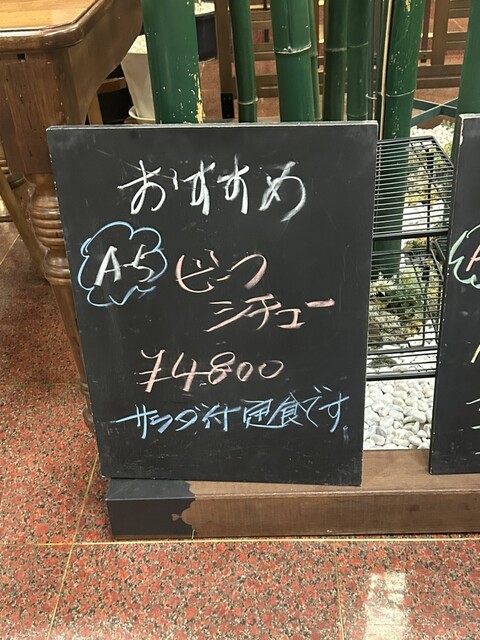 おすすめ
A-5 ビーフ
シチュー
¥4800
サラダ付 です。